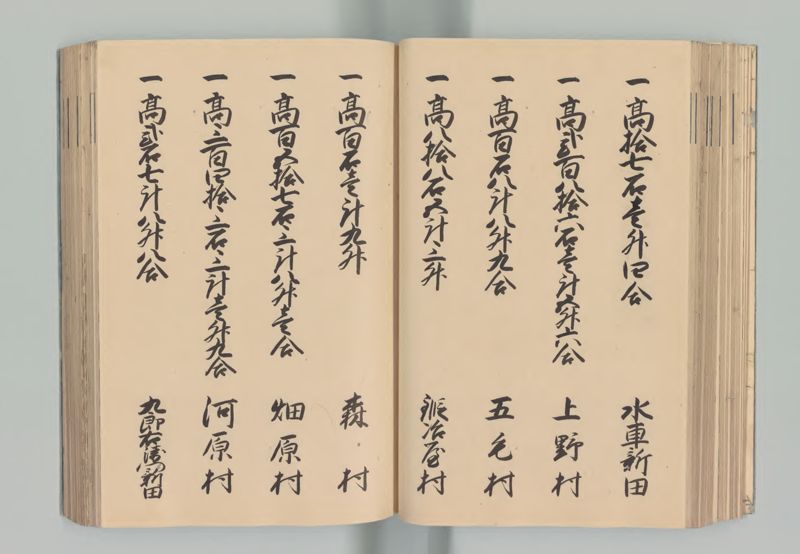 一 高拾七石壱升四合 水車新田
一 高弐百八拾六石壱斗五升六合 上野村
一 高百石八斗八升九合 五毛村
一 高八拾八石五斗三升 鍛冶屋村
一 高百石壱斗九升 森村
一 高百五拾七石三斗八升壱合 畑原村
一 高三百四拾三石三斗壱升九合 河原村
一 高弐石七斗八升八合 九郎右衛門新田